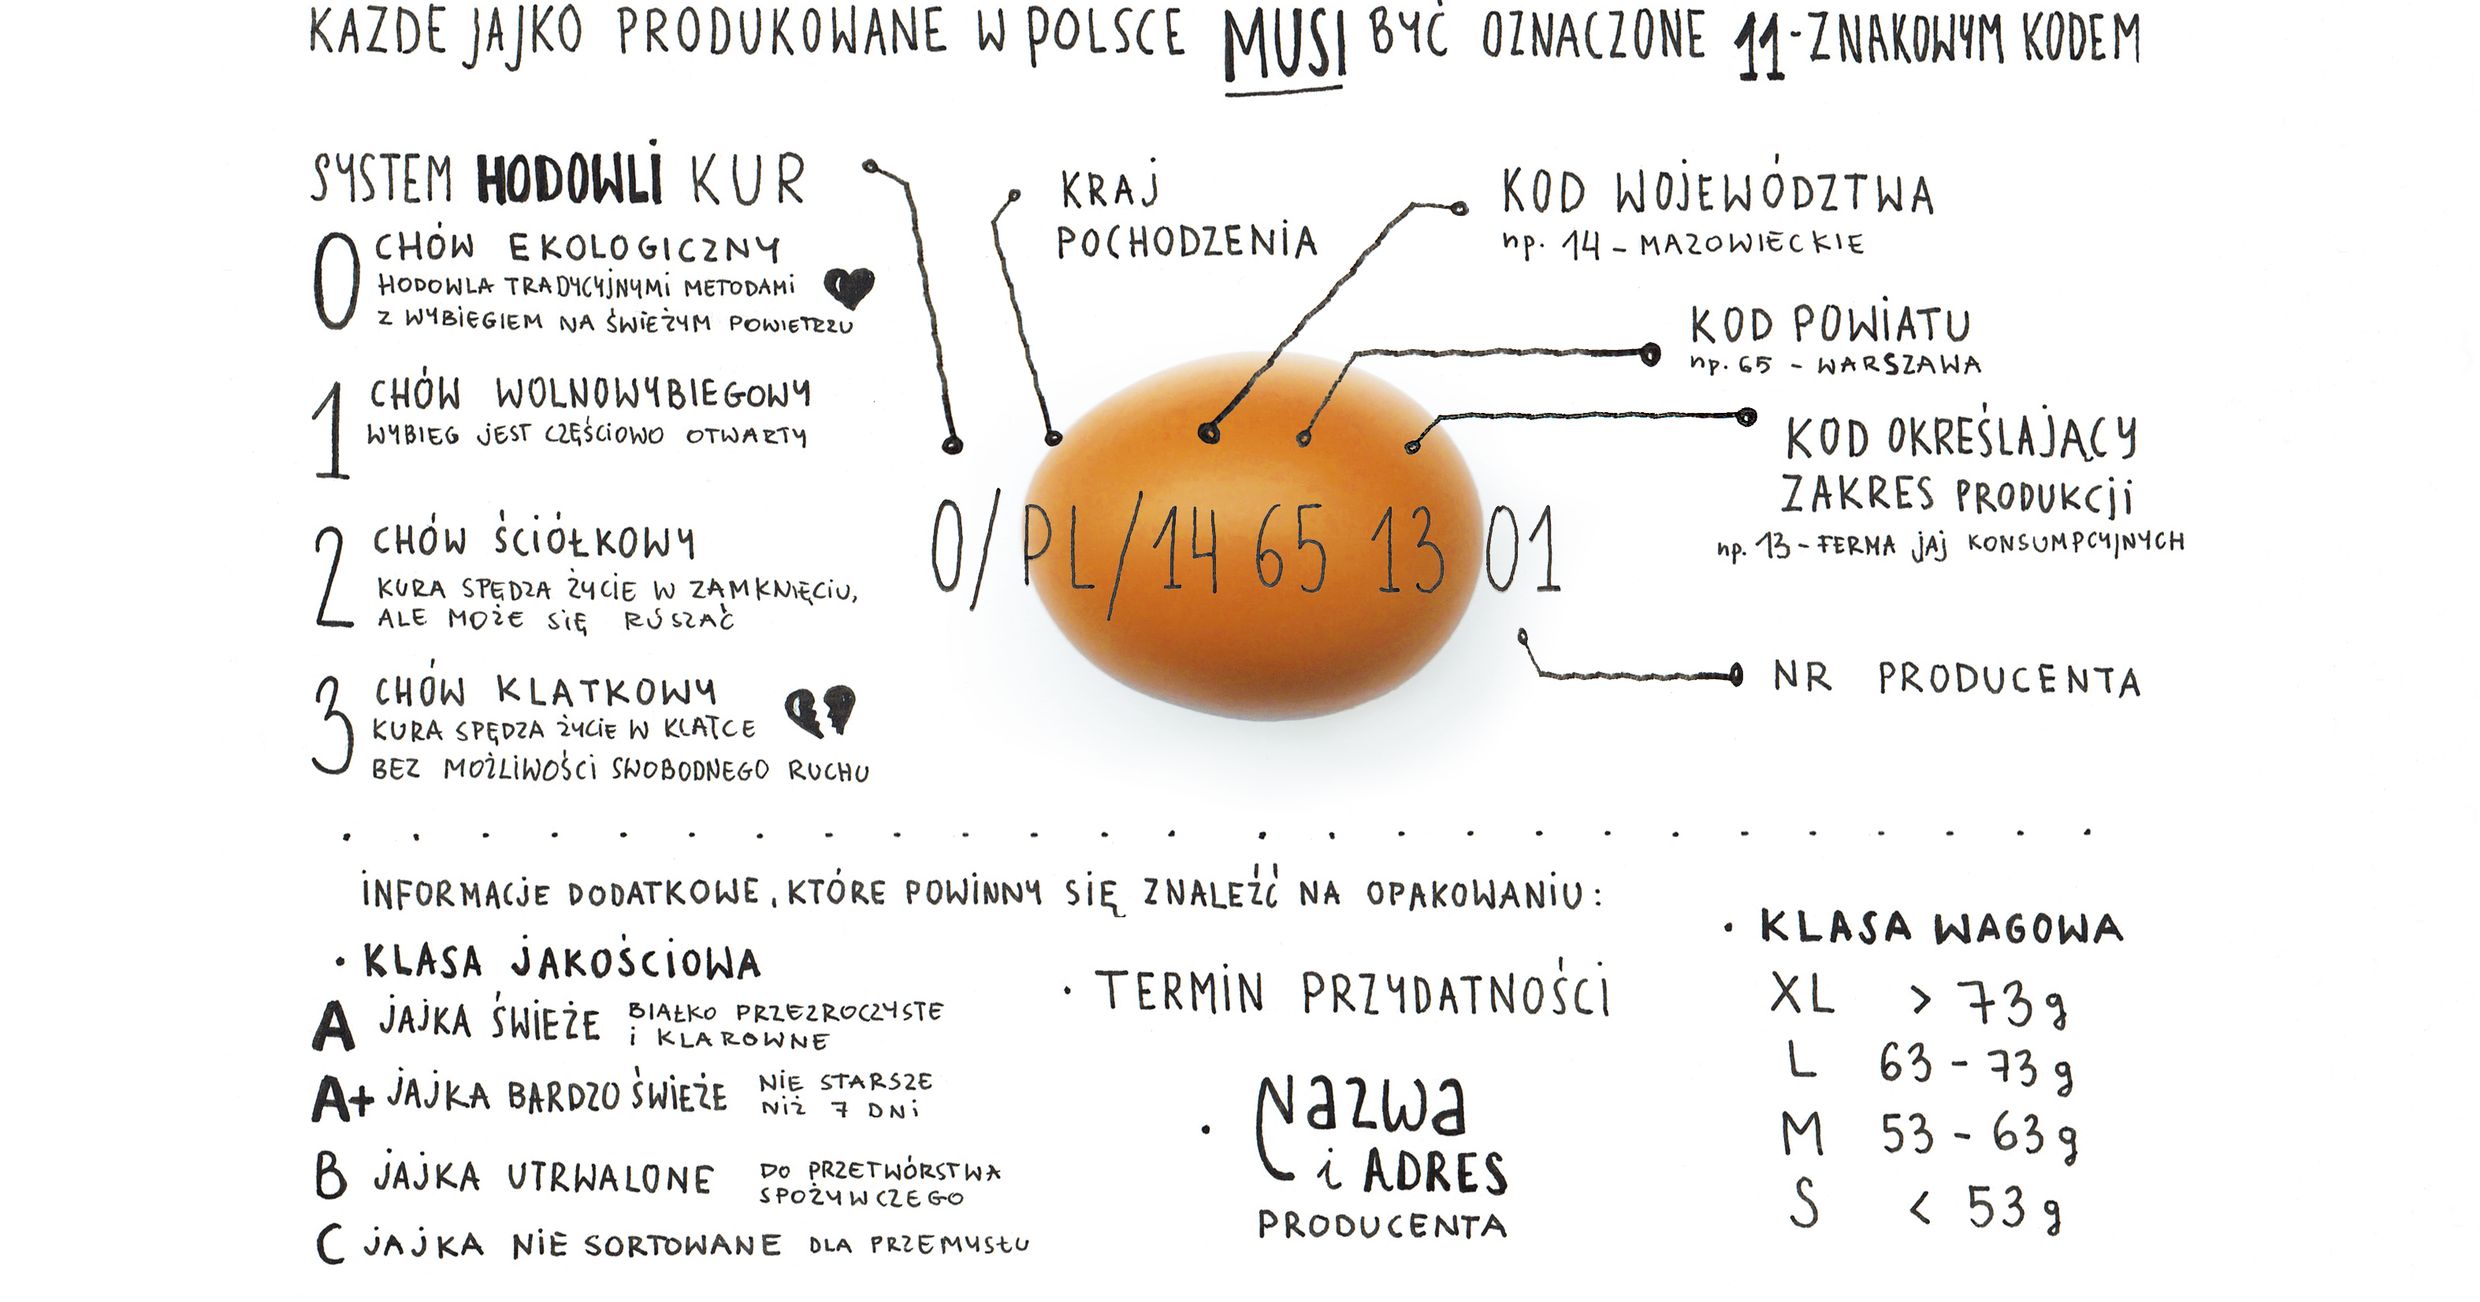 KAŻDE JAJKO PRODUKOWANE W POLSCE MUSI BYĆ OZNACZONE 11-ZNAKOWYM KODEM
SYSTEM HODOWLI KUR
0 CHÓW EKOLOGICZNY
HODOWLA TRADYCYJNYMI METODAMI
Z WYBIEGIEM NA ŚWIEŻYM POWIETRZU
1 CHÓW WOLNOWYBIEGOWY
WYBIEG JEST CZĘŚCIOWO OTWARTY
2 CHÓW ŚCIÓŁKOWY
KURA SPĘDZA ŻYCIE W ZAMKNIĘCIU,
ALE MOŻE SIĘ RUSZAĆ
3 CHÓW KLATKOWY
KURA SPĘDZA ŻYCIE W KLATCE
BEZ MOŻLIWOŚCI SWOBODNEGO RUCHU
KRAJ
POCHODZENIA
KOD WOJEWÓDZTWA
np. 14 - MAZOWIECKIE
KOD POWIATU
np. 65 - WARSZAWA
KOD OKREŚLAJĄCY
ZAKRES PRODUKCJI
np. 13 - FERMA JAJ KONSUMPCYJNYCH
0/PL/14 65 13 01
NR PRODUCENTA
INFORMACJE DODATKOWE, KTÓRE POWINNY SIĘ ZNALEŹĆ NA OPAKOWANIU:
• KLASA JAKOŚCIOWA
A JAJKA ŚWIEŻE BIAŁKO PRZEZROCZYSTE
I KLAROWNE
A+ JAJKA BARDZO ŚWIEŻE NIE STARSZE
NIŻ 7 DNI
B JAJKA UTRWALONE DO PRZETWÓRSTWA
SPOŻYWCZEGO
C JAJKA NIE SORTOWANE DLA PRZEMYSŁU
• TERMIN PRZYDATNOŚCI
• Nazwa
i ADRES
PRODUCENTA
• KLASA WAGOWA
XL > 73 g
L 63 - 73 g
M 53 - 63 g
S < 53 g